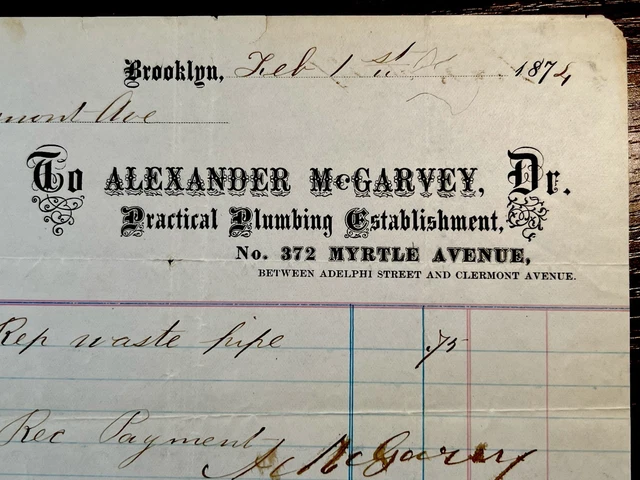 Brooklyn, Feb 1st 1874
mont Ave
To ALEXANDER McGARVEY, Dr.
Practical Plumbing Establishment,
No. 372 MYRTLE AVENUE,
BETWEEN ADELPHI STREET AND CLERMONT AVENUE.
Rep waste pipe .75
Rec Payment
A McGarvey